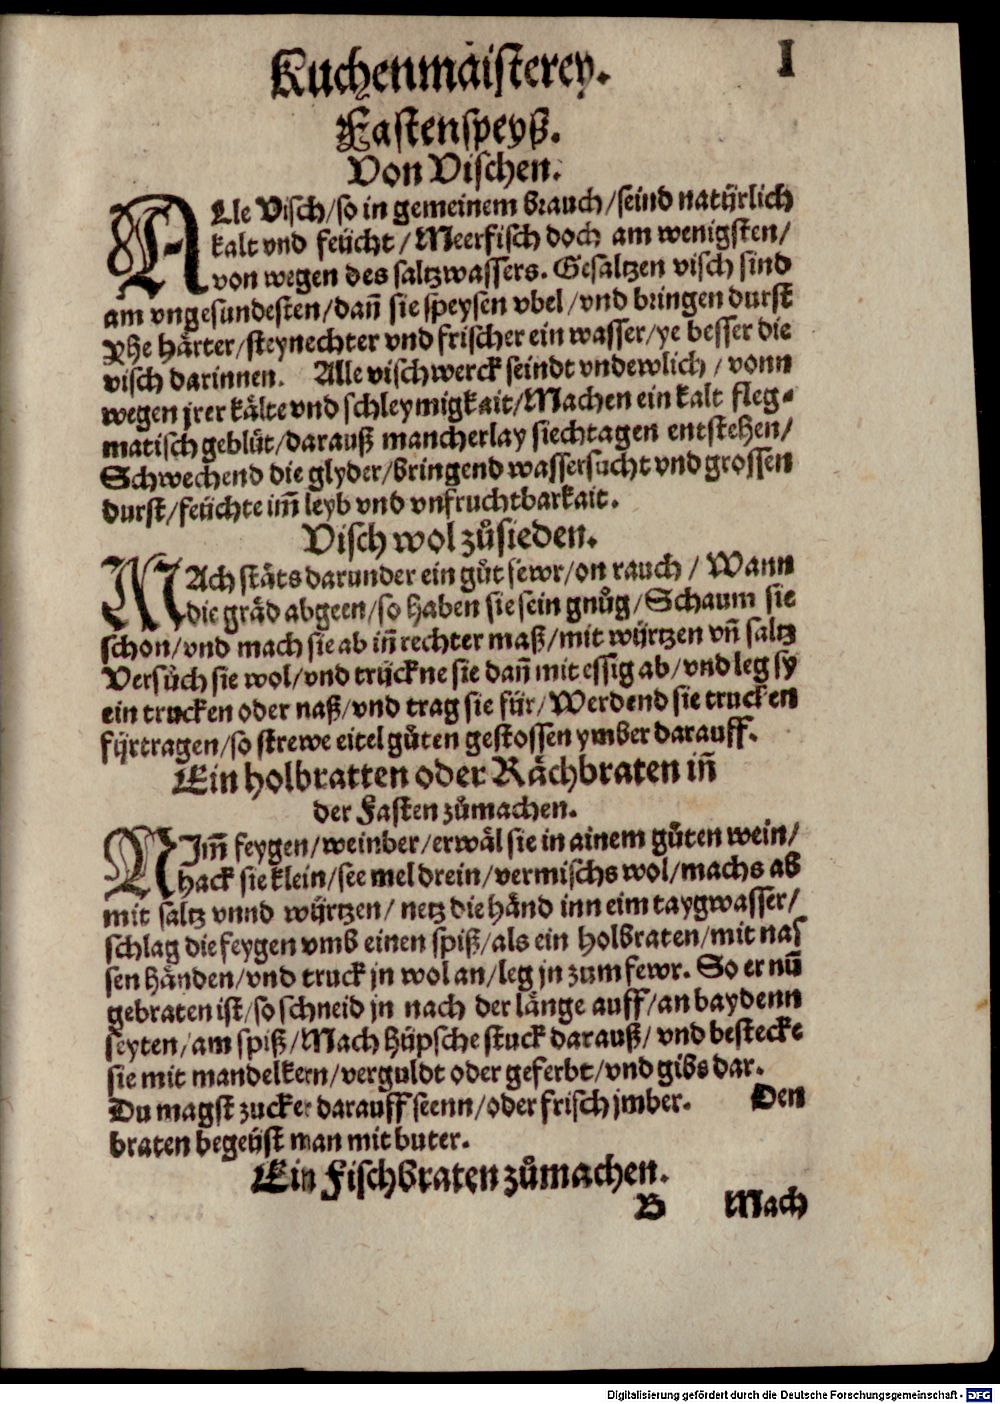 Kuchenmaisterey. I
Fastenspeyß.
Von Vischen.
ALle Visch/so in gemeinem brauch/seind natürlich
kalt vnd feücht/Meerfisch doch am wenigsten/
von wegen des saltzwassers. Gesaltzen visch sind
am vngesundesten/dañ sie speysen vbel/vnd bringen durst
Yhe härter/steynechter vnd frischer ein wasser/ye besser die
visch darinnen. Alle vischwerck seindt vndewlich/vonn
wegen jrer kälte vnd schleymigkait/Machen ein kalt fleg-
matisch geblüt/darauß mancherlay siechtagen entstehen/
Schwechend die glyder/bringend wassersucht vnd grossen
durst/feüchte im̃ leyb vnd vnfruchtbarkait.
Visch wol zůsieden.
MAch stäts darunder ein gůt fewr/on rauch/Wann
die gräd abgeen/so haben sie sein gnůg/Schaum sie
schon/vnd mach sie ab iñ rechter maß/mit würtzen vñ saltz
Versůch sie wol/vnd trückne sie dañ mit essig ab/vnd leg sy
ein trucken oder naß/vnd trag sie für/Werdend sie trucken
fürtragen/so strewe eitel gůten gestossen ymber darauff.
Ein holbratten oder Rächbraten iñ
der Fasten zůmachen.
NIm̃ feygen/weinber/erwäl sie in ainem gůten wein/
hack sie klein/see mel drein/vermischs wol/machs ab
mit saltz vnnd würtzen/netz die händ inn eim taygwasser/
schlag die feygen vmb einen spiß/als ein holbraten/mit nas
sen händen/vnd truck jn wol an/leg jn zum fewr. So er nũ
gebraten ist/so schneid jn nach der länge auff/an baydenn
seyten/am spiß/Mach hüpsche stuck darauß/vnd bestecke
sie mit mandelkern/verguldt oder geferbt/vnd gibs dar.
Du magst zucker darauff seenn/oder frisch jmber. Den
braten begeüst man mit buter.
Ein Fischbraten zůmachen.
B Mach
Digitalisierung gefördert durch die Deutsche Forschungsgemeinschaft - DFG